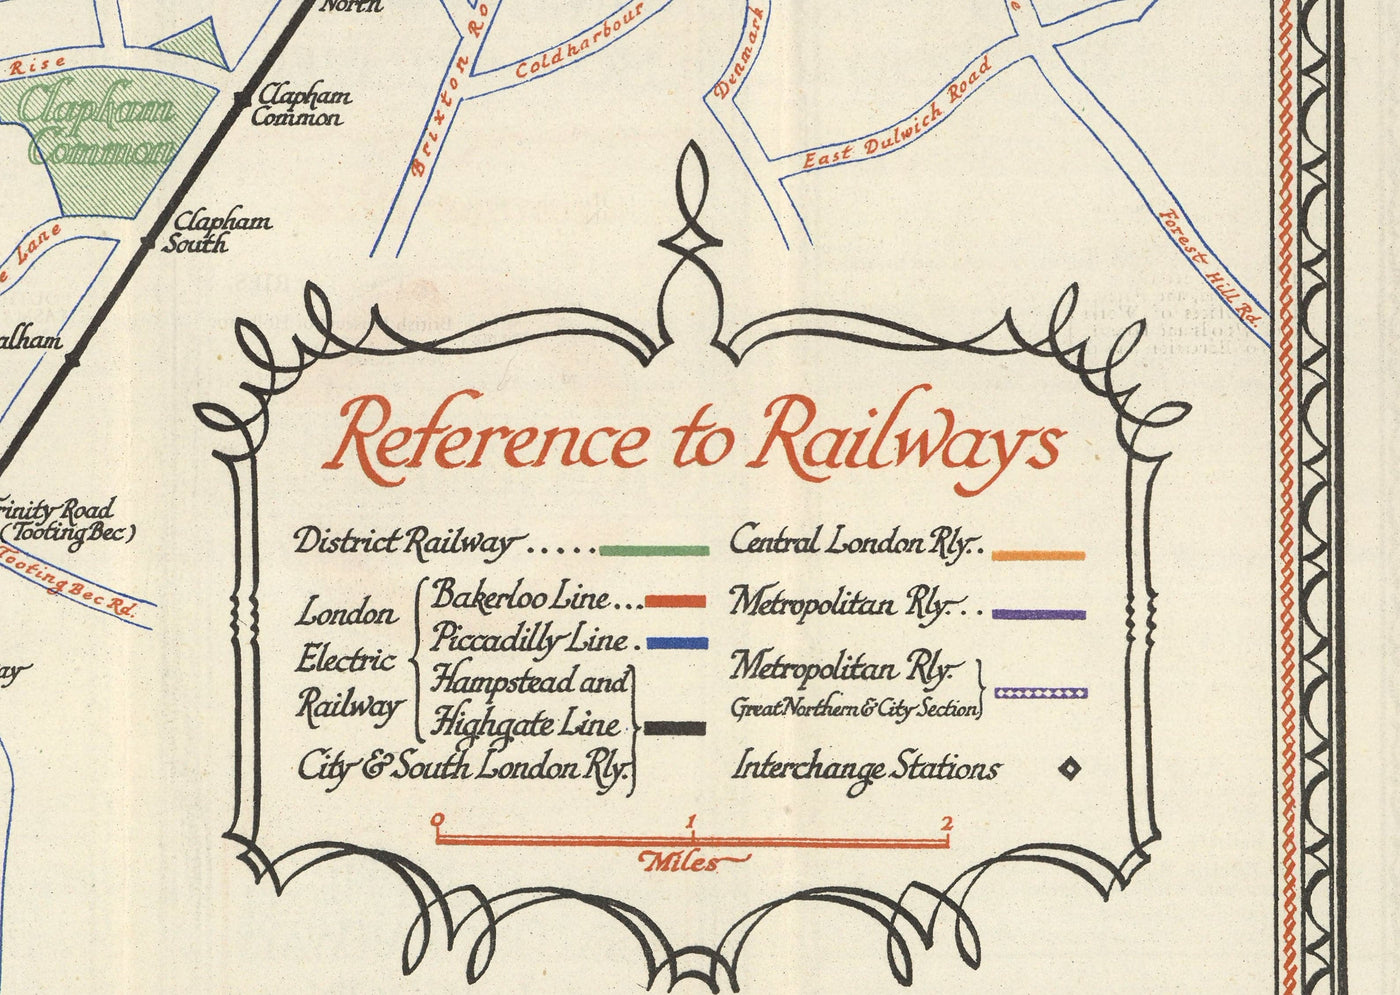 North
Rise
Brixton Ro
Coldharbour
Denmark
Clapham
Common
Clapham
Common
East Dulwich Road
Clapham
South
Lane
Forest Hill Rd.
alham
Reference to Railways
rinity Road
(Tooting Bec)
Tooting Bec Rd.
District Railway .....
Central London Rly..
London
Electric
Railway
Bakerloo Line...
Piccadilly Line.
Hampstead and
Highgate Line
City & South London Rly.
Metropolitan Rly...
Metropolitan Rly.
Great Northern & City Section
Interchange Stations
0 1 2
Miles